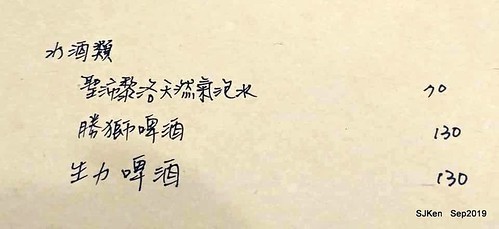 水酒類
聖沛黎洛天然氣泡水 70
勝獅啤酒 130
生力啤酒 130
SJKen Sep2019